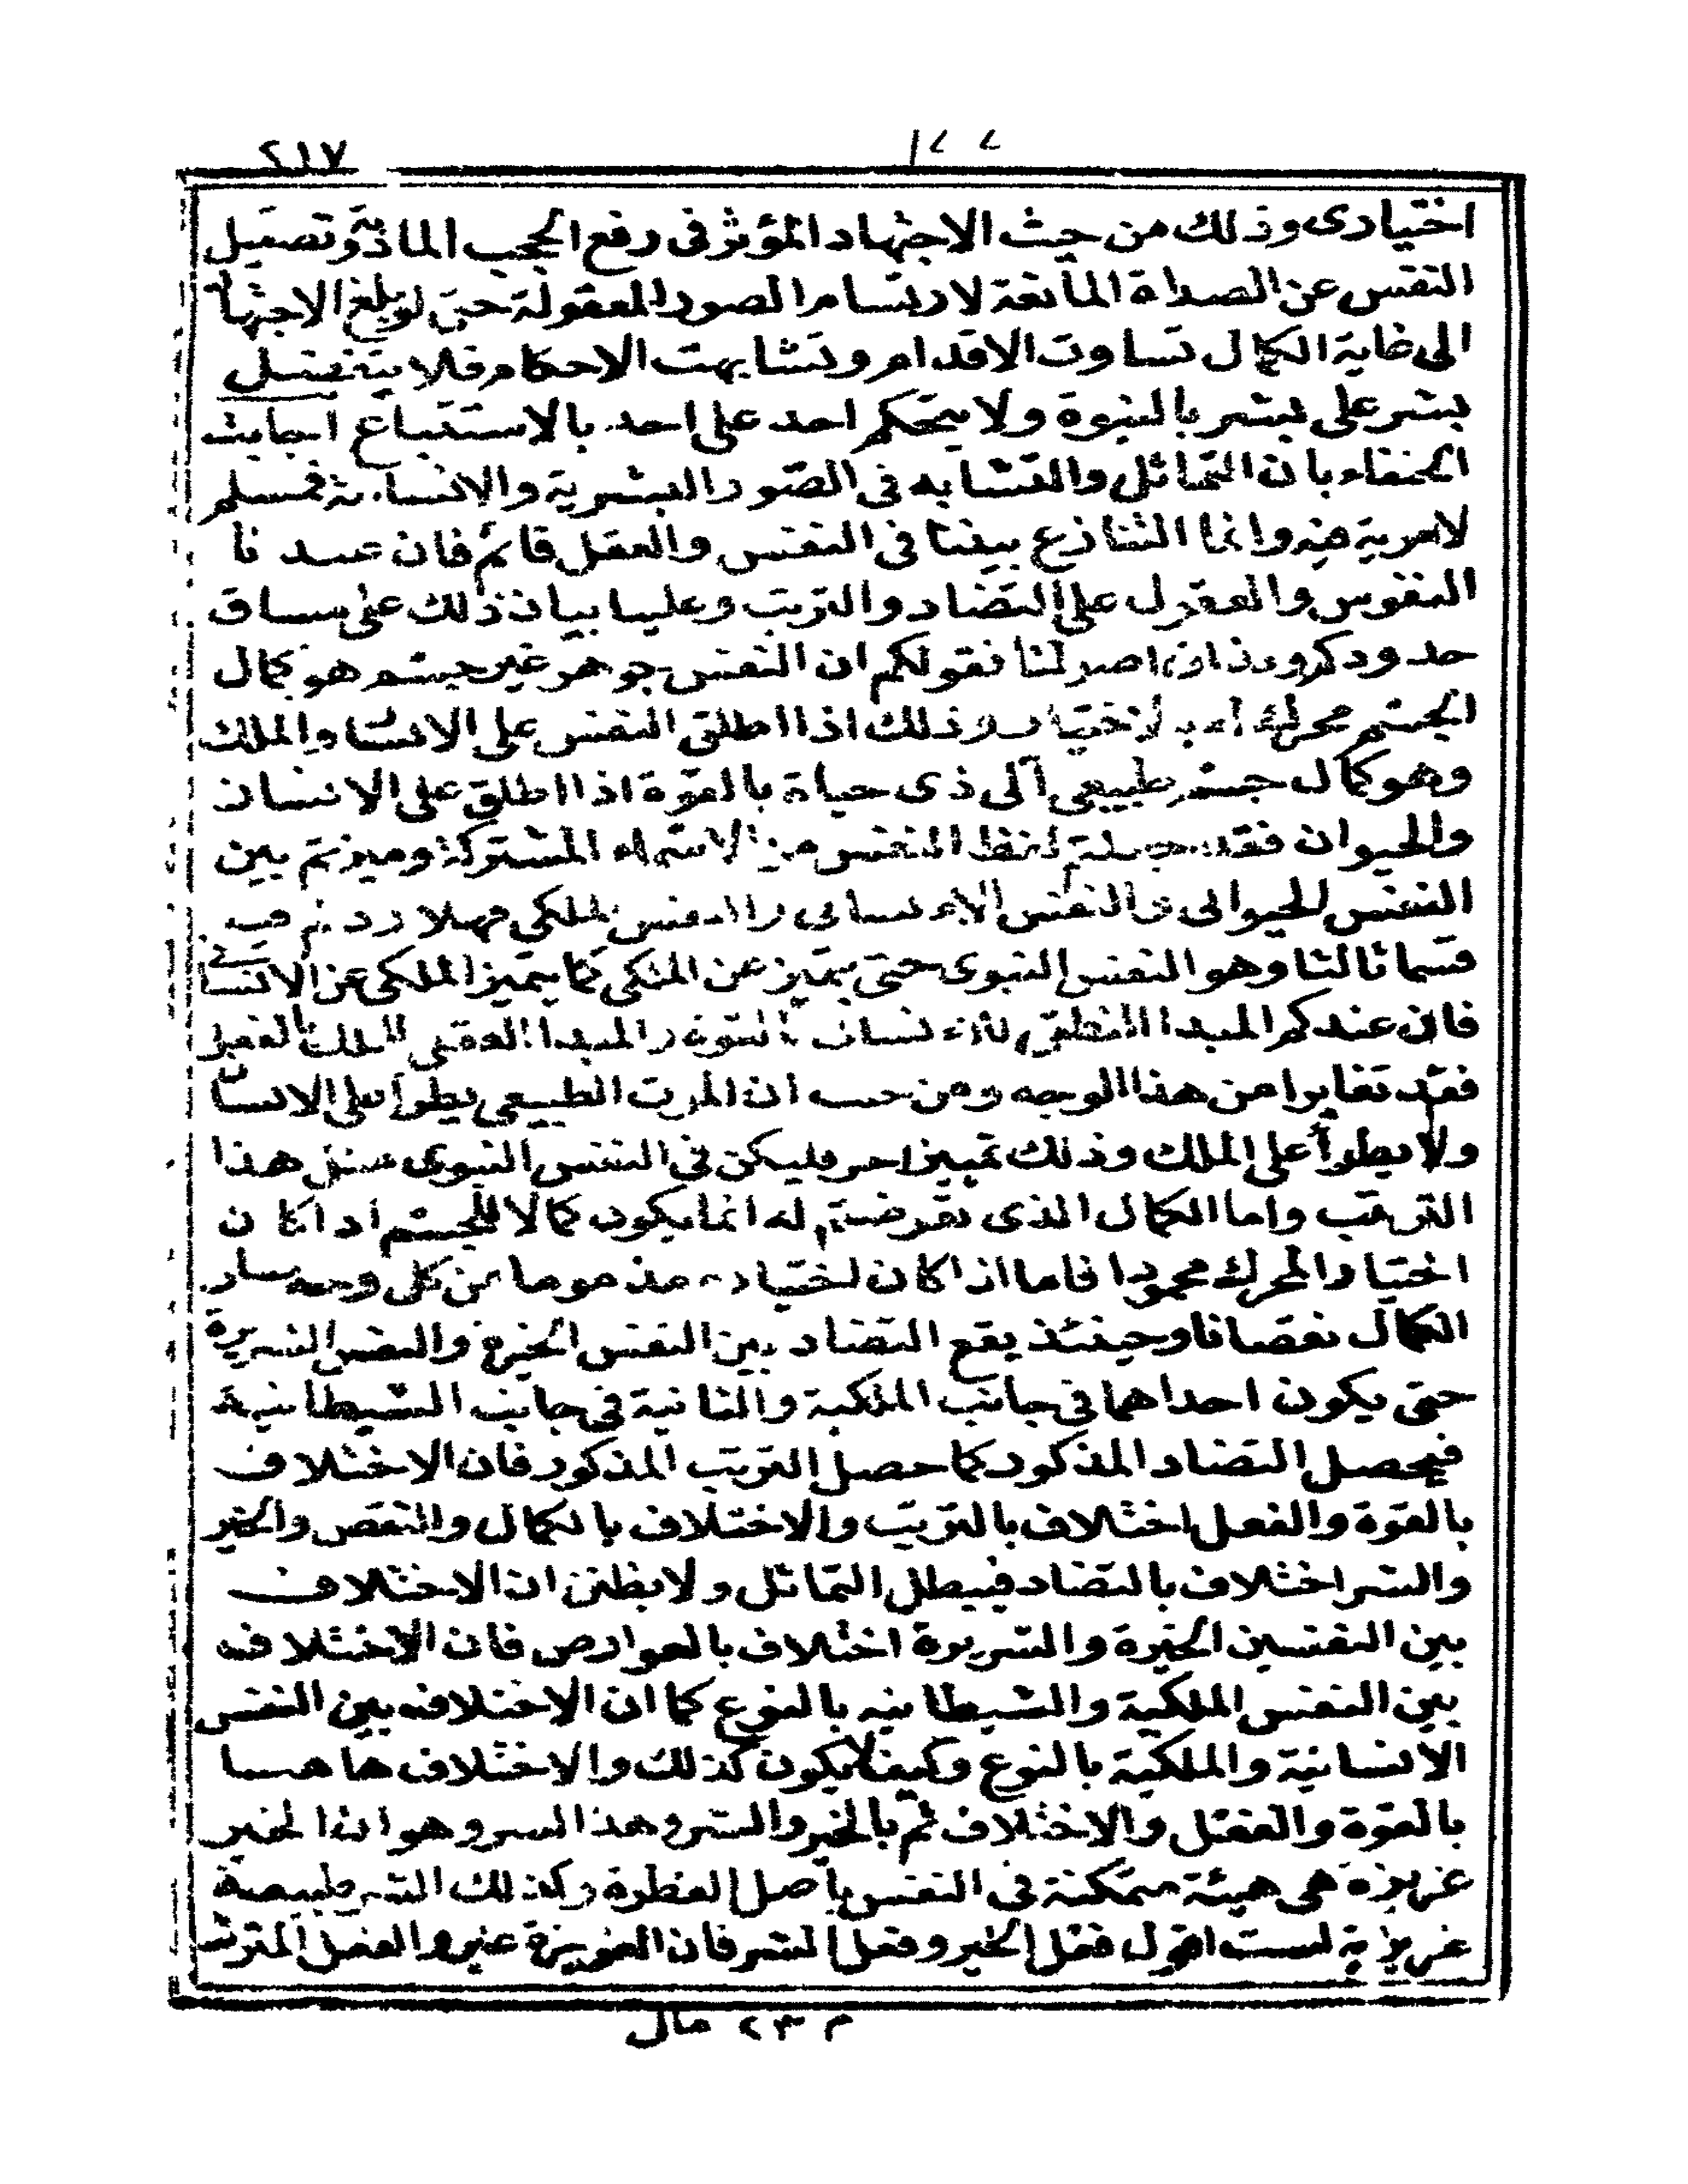 ٢١٧
اختيارى وذلك من حيث الاجتهاد المؤثر فى رفع الحجب المادية وتصقيل
النفس عن الصداة المانعة لارتسام الصور المعقولة حتى لو بلغ الاجتهاد
الى غاية الكمال تساوت الاقدام وتشابهت الاحكام فلا يتفضل
بشر على بشر بالنبوة ولا يتحكم احد على احد بالاستتباع اجابت
الحنفاء بان التماثل والتشابه فى الصور البشرية والانسانية فمسلم
لا مرية فيه وانما التنازع بيننا فى النفس والعقل قائم فان عندنا
النفوس والعقول على التضاد والترتب وعلينا بيان ذلك على مساق
حدودكم ومذاق اصولنا فقولكم ان النفس جوهر غير جسم هو كمال
الجسم محرك له بالاختيار وذلك اذا اطلق النفس على الانسان والملك
وهو كمال جسم طبيعى آلى ذى حياة بالقوة اذا اطلق على الانسان
والحيوان فقد جعلتم لفظ النفس من الاسماء المشتركة وميزتم بين
النفس الحيوانى والنفس الانسانى والنفس الملكى فهلا زدتم فيه
قسما ثالثا وهو النفس النبوى حتى يتميز عن الملكى كما يتميز الملكى عن الانسانى
فان عندكم المبدا النطقى للانسان بالقوة والمبدا العقلى للملك بالفعل
فقد تغايرا من هذا الوجه ومن حيث ان الموت الطبيعى يطرأ على الانسان
ولا يطرأ على الملك وذلك تمييز اخر فليكن فى النفس النبوى مثل هذا
الترتب واما الكمال الذى تعرضتم له انما يكون كمالا للجسم اذا كان
اختيار المحرك محمودا فاما اذا كان اختياره مذموما من كل وجه صار
الكمال نقصانا وحينئذ يقع التضاد بين النفس الخيرة والنفس الشريرة
حتى يكون احداهما فى جانب الملكية والثانية فى جانب الشيطانية
فيحصل التضاد المذكور كما حصل الترتب المذكور فان الاختلاف
بالقوة والفعل اختلاف بالترتب والاختلاف بالكمال والنقص والخير
والشر اختلاف بالتضاد فيبطل التماثل ولا يظنن ان الاختلاف
بين النفسين الخيرة والشريرة اختلاف بالعوارض فان الاختلاف
بين النفس الملكية والشيطانيه بالنوع كما ان الاختلاف بين النفس
الانسانية والملكية بالنوع وكيف لا يكون كذلك والاختلاف هاهنا
بالقوة والفعل والاختلاف ثم بالخير والشر وهذا السر وهو ان الخير
غريزة هى هيئة متمكنة فى النفس باصل الفطرة وكذلك الشر طبيعة
غريزية لست اقول فعل الخير وفعل الشر فان الغريزة غير والفعل المترتب
م ٢٣ مال